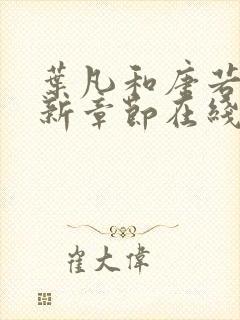 葉凡和唐若
新章節在綫
崔大偉